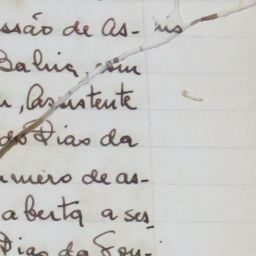 ssão de As-
Bahia, com
, Assistente
do Dias da
umero de as-
aberta a ses
Dias da Sou-